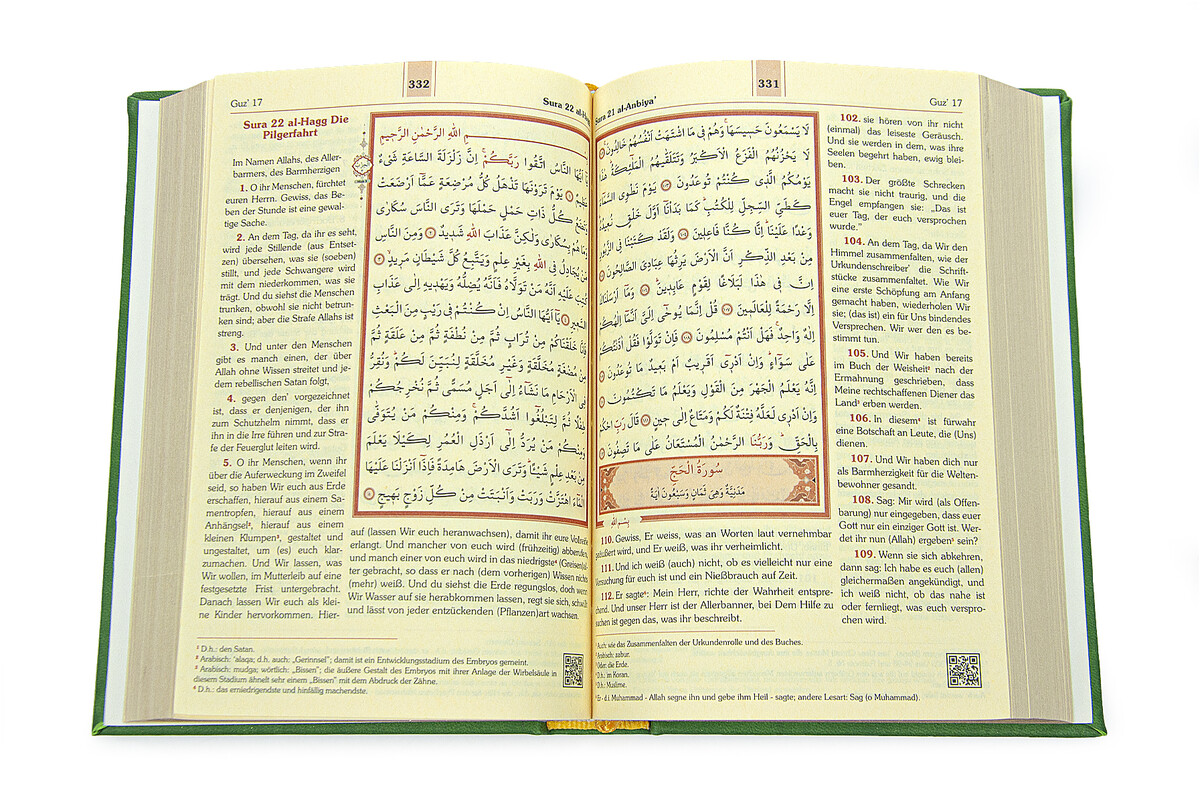 331
Sura 21 al-Anbiya'
Guz' 17
لَا يَسْمَعُونَ حَسِيسَهَا وَهُمْ فِى مَا اشْتَهَتْ اَنْفُسُهُمْ خَالِدُونَ
لَا يَحْزُنُهُمُ الْفَزَعُ الْاَكْبَرُ وَتَتَلَقّٰيهُمُ الْمَلٰٓئِكَةُ هٰذَا
يَوْمُكُمُ الَّذِى كُنْتُمْ تُوعَدُونَ ١٠٣ يَوْمَ نَطْوِى السَّمَٓاءَ
كَطَيِّ السِّجِلِّ لِلْكُتُبِ كَمَا بَدَأْنَٓا اَوَّلَ خَلْقٍ نُعِيدُهُ
وَعْدًا عَلَيْنَا اِنَّا كُنَّا فَاعِلِينَ ١٠٤ وَلَقَدْ كَتَبْنَا فِى الزَّبُورِ
مِنْ بَعْدِ الذِّكْرِ اَنَّ الْاَرْضَ يَرِثُهَا عِبَادِىَ الصَّالِحُونَ
اِنَّ فِى هٰذَا لَبَلَاغًا لِقَوْمٍ عَابِدِينَ ١٠٦ وَمَٓا اَرْسَلْنَاكَ
اِلَّا رَحْمَةً لِلْعَالَمِينَ ١٠٧ قُلْ اِنَّمَا يُوحٰٓى اِلَىَّ اَنَّمَٓا اِلٰهُكُمْ
اِلٰهٌ وَاحِدٌ فَهَلْ اَنْتُمْ مُسْلِمُونَ ١٠٨ فَاِنْ تَوَلَّوْا فَقُلْ اٰذَنْتُكُمْ
عَلٰى سَوَٓاءٍ وَاِنْ اَدْرِٓى اَقَرِيبٌ اَمْ بَعِيدٌ مَا تُوعَدُونَ
اِنَّهُ يَعْلَمُ الْجَهْرَ مِنَ الْقَوْلِ وَيَعْلَمُ مَا تَكْتُمُونَ
وَاِنْ اَدْرِى لَعَلَّهُ فِتْنَةٌ لَكُمْ وَمَتَاعٌ اِلٰى حِينٍ ١١١ قَالَ رَبِّ احْكُمْ
بِالْحَقِّ وَرَبُّنَا الرَّحْمٰنُ الْمُسْتَعَانُ عَلٰى مَا تَصِفُونَ
سُورَةُ الْحَجِّ
مَدَنِيَّةٌ وَهِىَ ثَمَانٍ وَسَبْعُونَ اٰيَةً
بِسْمِ اللّٰهِ
102. sie hören von ihr nicht
(einmal) das leiseste Geräusch.
Und sie werden in dem, was ihre
Seelen begehrt haben, ewig blei-
ben.
103. Der größte Schrecken
macht sie nicht traurig, und die
Engel empfangen sie: „Das ist
euer Tag, der euch versprochen
wurde.“
104. An dem Tag, da Wir den
Himmel zusammenfalten, wie der
Urkundenschreiber¹ die Schrift-
stücke zusammenfaltet. Wie Wir
eine erste Schöpfung am Anfang
gemacht haben, wiederholen Wir
sie; (das ist) ein für Uns bindendes
Versprechen. Wir wer den es be-
stimmt tun.
105. Und Wir haben bereits
im Buch der Weisheit² nach der
Ermahnung geschrieben, dass
Meine rechtschaffenen Diener das
Land³ erben werden.
106. In diesem⁴ ist fürwahr
eine Botschaft an Leute, die (Uns)
dienen.
107. Und Wir haben dich nur
als Barmherzigkeit für die Welten-
bewohner gesandt.
108. Sag: Mir wird (als Offen-
barung) nur eingegeben, dass euer
Gott nur ein einziger Gott ist. Wer-
det ihr nun (Allah) ergeben⁵ sein?
109. Wenn sie sich abkehren,
dann sag: Ich habe es euch (allen)
gleichermaßen angekündigt, und
ich weiß nicht, ob das nahe ist
oder fernliegt, was euch verspro-
chen wird.
110. Gewiss, Er weiss, was an Worten laut vernehmbar
geäußert wird, und Er weiß, was ihr verheimlicht.
111. Und ich weiß (auch) nicht, ob es vielleicht nur eine
Versuchung für euch ist und ein Nießbrauch auf Zeit.
112. Er sagte⁶: Mein Herr, richte der Wahrheit entspre-
chend. Und unser Herr ist der Allerbanner, bei Dem Hilfe zu
suchen ist gegen das, was ihr beschreibt.
¹ Auch: wie das Zusammenfalten der Urkundenrolle und des Buches.
² Arabisch: zabur.
³ Oder: die Erde.
⁴ D.h.: im Koran.
⁵ D.h.: Muslime.
⁶ Er - d.i. Muhammad - Allah segne ihn und gebe ihm Heil - sagte; andere Lesart: Sag (o Muhammad).
Guz' 17
332
Sura 22 al-Hagg
Sura 22 al-Hagg Die
Pilgerfahrt
Im Namen Allahs, des Aller-
barmers, des Barmherzigen
1. O ihr Menschen, fürchtet
euren Herrn. Gewiss, das Be-
ben der Stunde ist eine gewal-
tige Sache.
2. An dem Tag, da ihr es seht,
wird jede Stillende (aus Entset-
zen) übersehen, was sie (soeben)
stillt, und jede Schwangere wird
mit dem niederkommen, was sie
trägt. Und du siehst die Menschen
trunken, obwohl sie nicht betrun-
ken sind; aber die Strafe Allahs ist
streng.
3. Und unter den Menschen
gibt es manch einen, der über
Allah ohne Wissen streitet und je-
dem rebellischen Satan folgt,
4. gegen den¹ vorgezeichnet
ist, dass er denjenigen, der ihn
zum Schutzhelm nimmt, dass er
ihn in die Irre führen und zur Stra-
fe der Feuerglut leiten wird.
5. O ihr Menschen, wenn ihr
über die Auferweckung im Zweifel
seid, so haben Wir euch aus Erde
erschaffen, hierauf aus einem Sa-
mentropfen, hierauf aus einem
Anhängsel², hierauf aus einem
kleinen Klumpen³, gestaltet und
ungestaltet, um (es) euch klar-
zumachen. Und Wir lassen, was
Wir wollen, im Mutterleib auf eine
festgesetzte Frist untergebracht.
Danach lassen Wir euch als klei-
ne Kinder hervorkommen. Hier-
auf (lassen Wir euch heranwachsen), damit ihr eure Vollreife
erlangt. Und mancher von euch wird (frühzeitig) abberufen,
und manch einer von euch wird in das niedrigste⁴ (Greisen)al-
ter gebracht, so dass er nach (dem vorherigen) Wissen nichts
(mehr) weiß. Und du siehst die Erde regungslos, doch wenn
Wir Wasser auf sie herabkommen lassen, regt sie sich, schwillt
und lässt von jeder entzückenden (Pflanzen)art wachsen.
مِ اللّٰهِ الرَّحْمٰنِ الرَّحِيمِ
يَٓا اَيُّهَا النَّاسُ اتَّقُوا رَبَّكُمْ اِنَّ زَلْزَلَةَ السَّاعَةِ شَىْءٌ
عَظِيمٌ ١ يَوْمَ تَرَوْنَهَا تَذْهَلُ كُلُّ مُرْضِعَةٍ عَمَّٓا اَرْضَعَتْ
وَتَضَعُ كُلُّ ذَاتِ حَمْلٍ حَمْلَهَا وَتَرَى النَّاسَ سُكَارٰى
وَمَا هُمْ بِسُكَارٰى وَلٰكِنَّ عَذَابَ اللّٰهِ شَدِيدٌ ٢ وَمِنَ النَّاسِ
مَنْ يُجَادِلُ فِى اللّٰهِ بِغَيْرِ عِلْمٍ وَيَتَّبِعُ كُلَّ شَيْطَانٍ مَرِيدٍ ٣
كُتِبَ عَلَيْهِ اَنَّهُ مَنْ تَوَلَّاهُ فَاَنَّهُ يُضِلُّهُ وَيَهْدِيهِ اِلٰى عَذَابِ
السَّعِيرِ ٤ يَٓا اَيُّهَا النَّاسُ اِنْ كُنْتُمْ فِى رَيْبٍ مِنَ الْبَعْثِ
فَاِنَّا خَلَقْنَاكُمْ مِنْ تُرَابٍ ثُمَّ مِنْ نُطْفَةٍ ثُمَّ مِنْ عَلَقَةٍ ثُمَّ
مِنْ مُضْغَةٍ مُخَلَّقَةٍ وَغَيْرِ مُخَلَّقَةٍ لِنُبَيِّنَ لَكُمْ وَنُقِرُّ
فِى الْاَرْحَامِ مَا نَشَٓاءُ اِلٰٓى اَجَلٍ مُسَمًّى ثُمَّ نُخْرِجُكُمْ
طِفْلًا ثُمَّ لِتَبْلُغُٓوا اَشُدَّكُمْ وَمِنْكُمْ مَنْ يُتَوَفّٰى
وَمِنْكُمْ مَنْ يُرَدُّ اِلٰٓى اَرْذَلِ الْعُمُرِ لِكَيْلَا يَعْلَمَ
مِنْ بَعْدِ عِلْمٍ شَيْئًا وَتَرَى الْاَرْضَ هَامِدَةً فَاِذَٓا اَنْزَلْنَا عَلَيْهَا
الْمَٓاءَ اهْتَزَّتْ وَرَبَتْ وَاَنْبَتَتْ مِنْ كُلِّ زَوْجٍ بَهِيجٍ ٥
¹ D.h.: den Satan.
² Arabisch: 'alaqa; d.h. auch: „Gerinnsel”; damit ist ein Entwicklungsstadium des Embryos gemeint.
³ Arabisch: mudga; wörtlich: „Bissen”; die äußere Gestalt des Embryos mit ihrer Anlage der Wirbelsäule in
diesem Stadium ähnelt sehr einem „Bissen” mit dem Abdruck der Zähne.
⁴ D.h.: das erniedrigendste und hinfällig machendste.